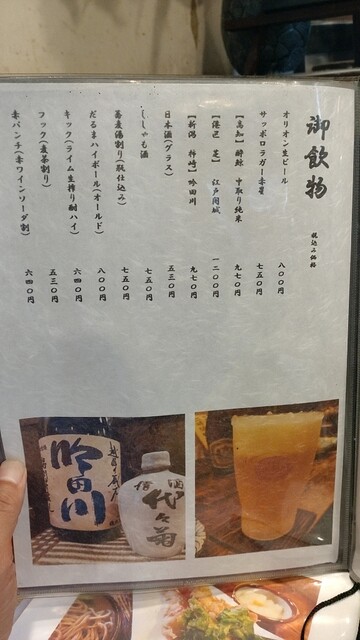 御飲物
税込み価格
オリオン生ビール 八〇〇円
サッポロラガー赤星 七五〇円
【高知】酔鯨 中取り純米 九七〇円
【港区 芝】江戸開城 一二〇〇円
【新潟 柿崎】吟田川 九七〇円
日本酒(グラス) 五三〇円
ししゃも酒 七五〇円
蕎麦湯割り(瓶仕込み) 七五〇円
だるまハイボール(オールド) 八〇〇円
キック(ライム生搾り酎ハイ) 六四〇円
フック(麦茶割り) 五三〇円
赤パンチ(赤ワインソーダ割) 六四〇円
吟田川
代々菊